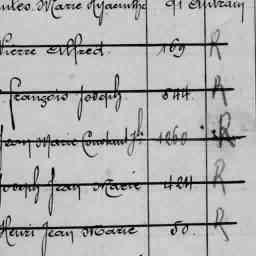 Jules Marie Hyacinthe
Pierre Alfred. 169 R
François Joseph. 844. R
Jean Marie Constant Jh. 1260 R
Joseph Jean Marie 424 R
Henri Jean Marie 50. R